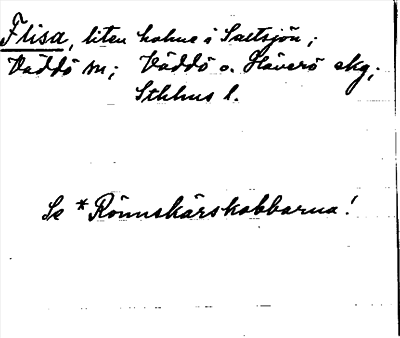 Flisa, liten holme i Saltsjön;
Väddö sn; Väddö o. Häverö skg;
Sthlms l.
Se *Rönnskärskobbarna!